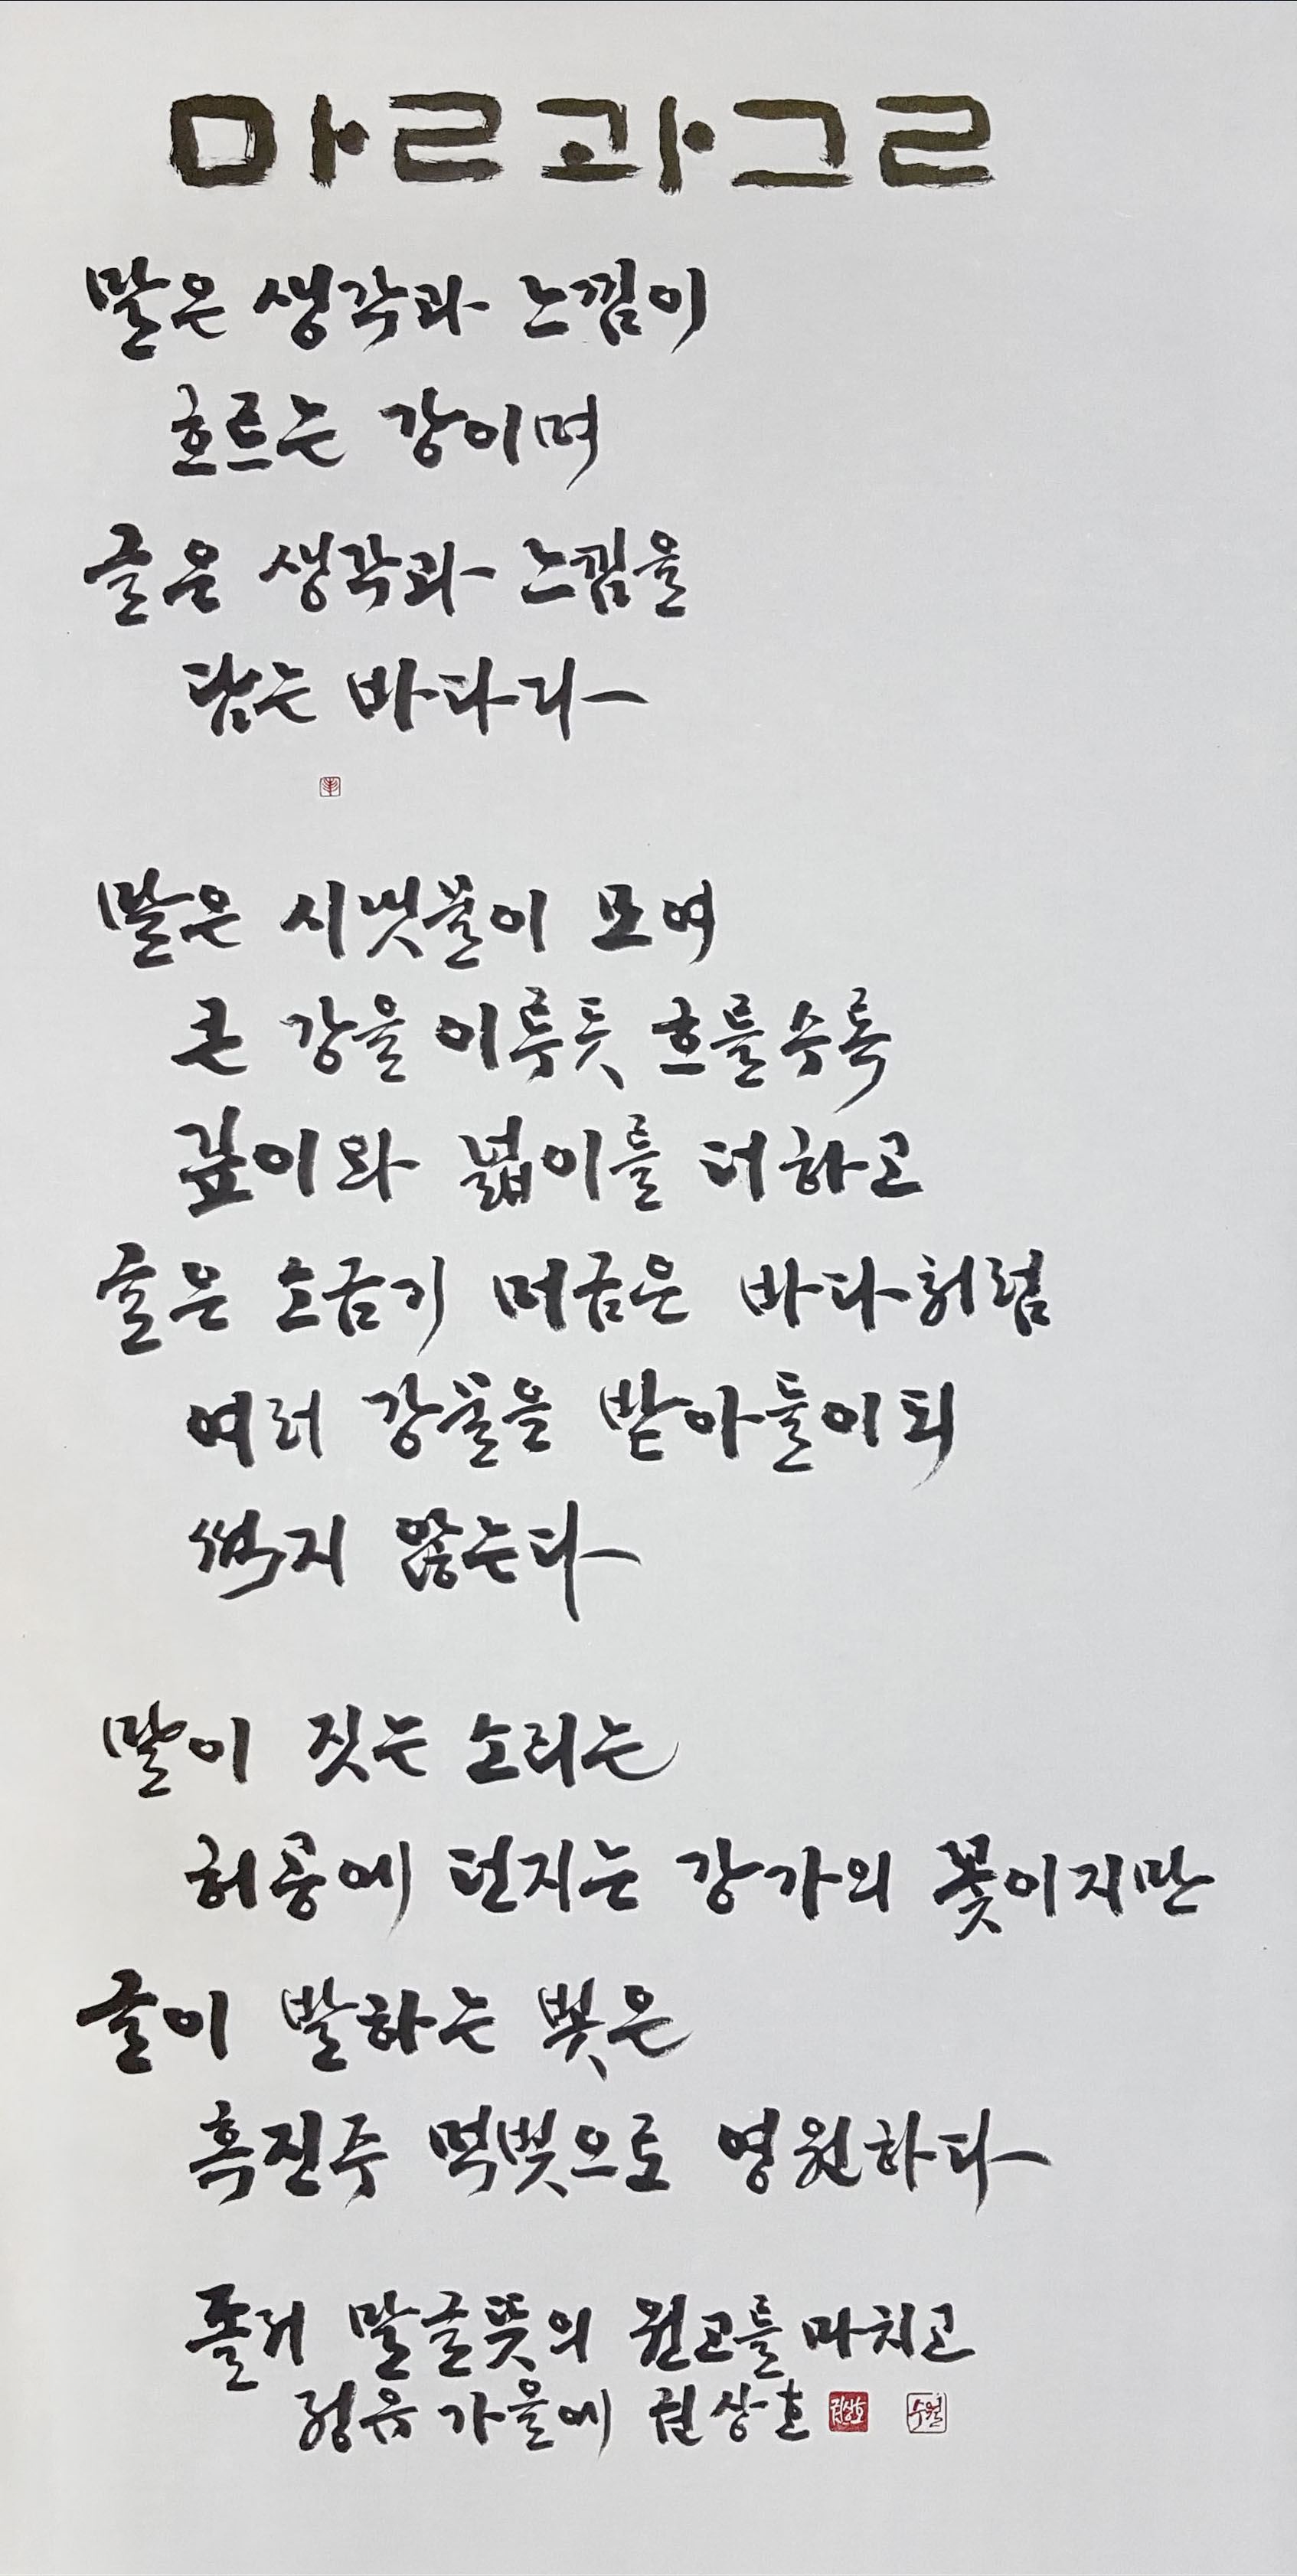 마ㄹ과그ㄹ
말은 생각과 느낌이
흐르는 강이며
글은 생각과 느낌을
담는 바다라
말은 시냇물이 모여
큰 강을 이루듯 흐를수록
깊이와 넓이를 더하고
글은 소금기 머금은 바다처럼
여러 강물을 받아들이되
썩지 않는다
말이 짓는 소리는
허공에 던지는 강가의 꽃이지만
글이 발하는 빛은
흑진주 먹빛으로 영원하다
졸저 말글뜻의 원고를 마치고
정유 가을에 권상호 권상호 수월